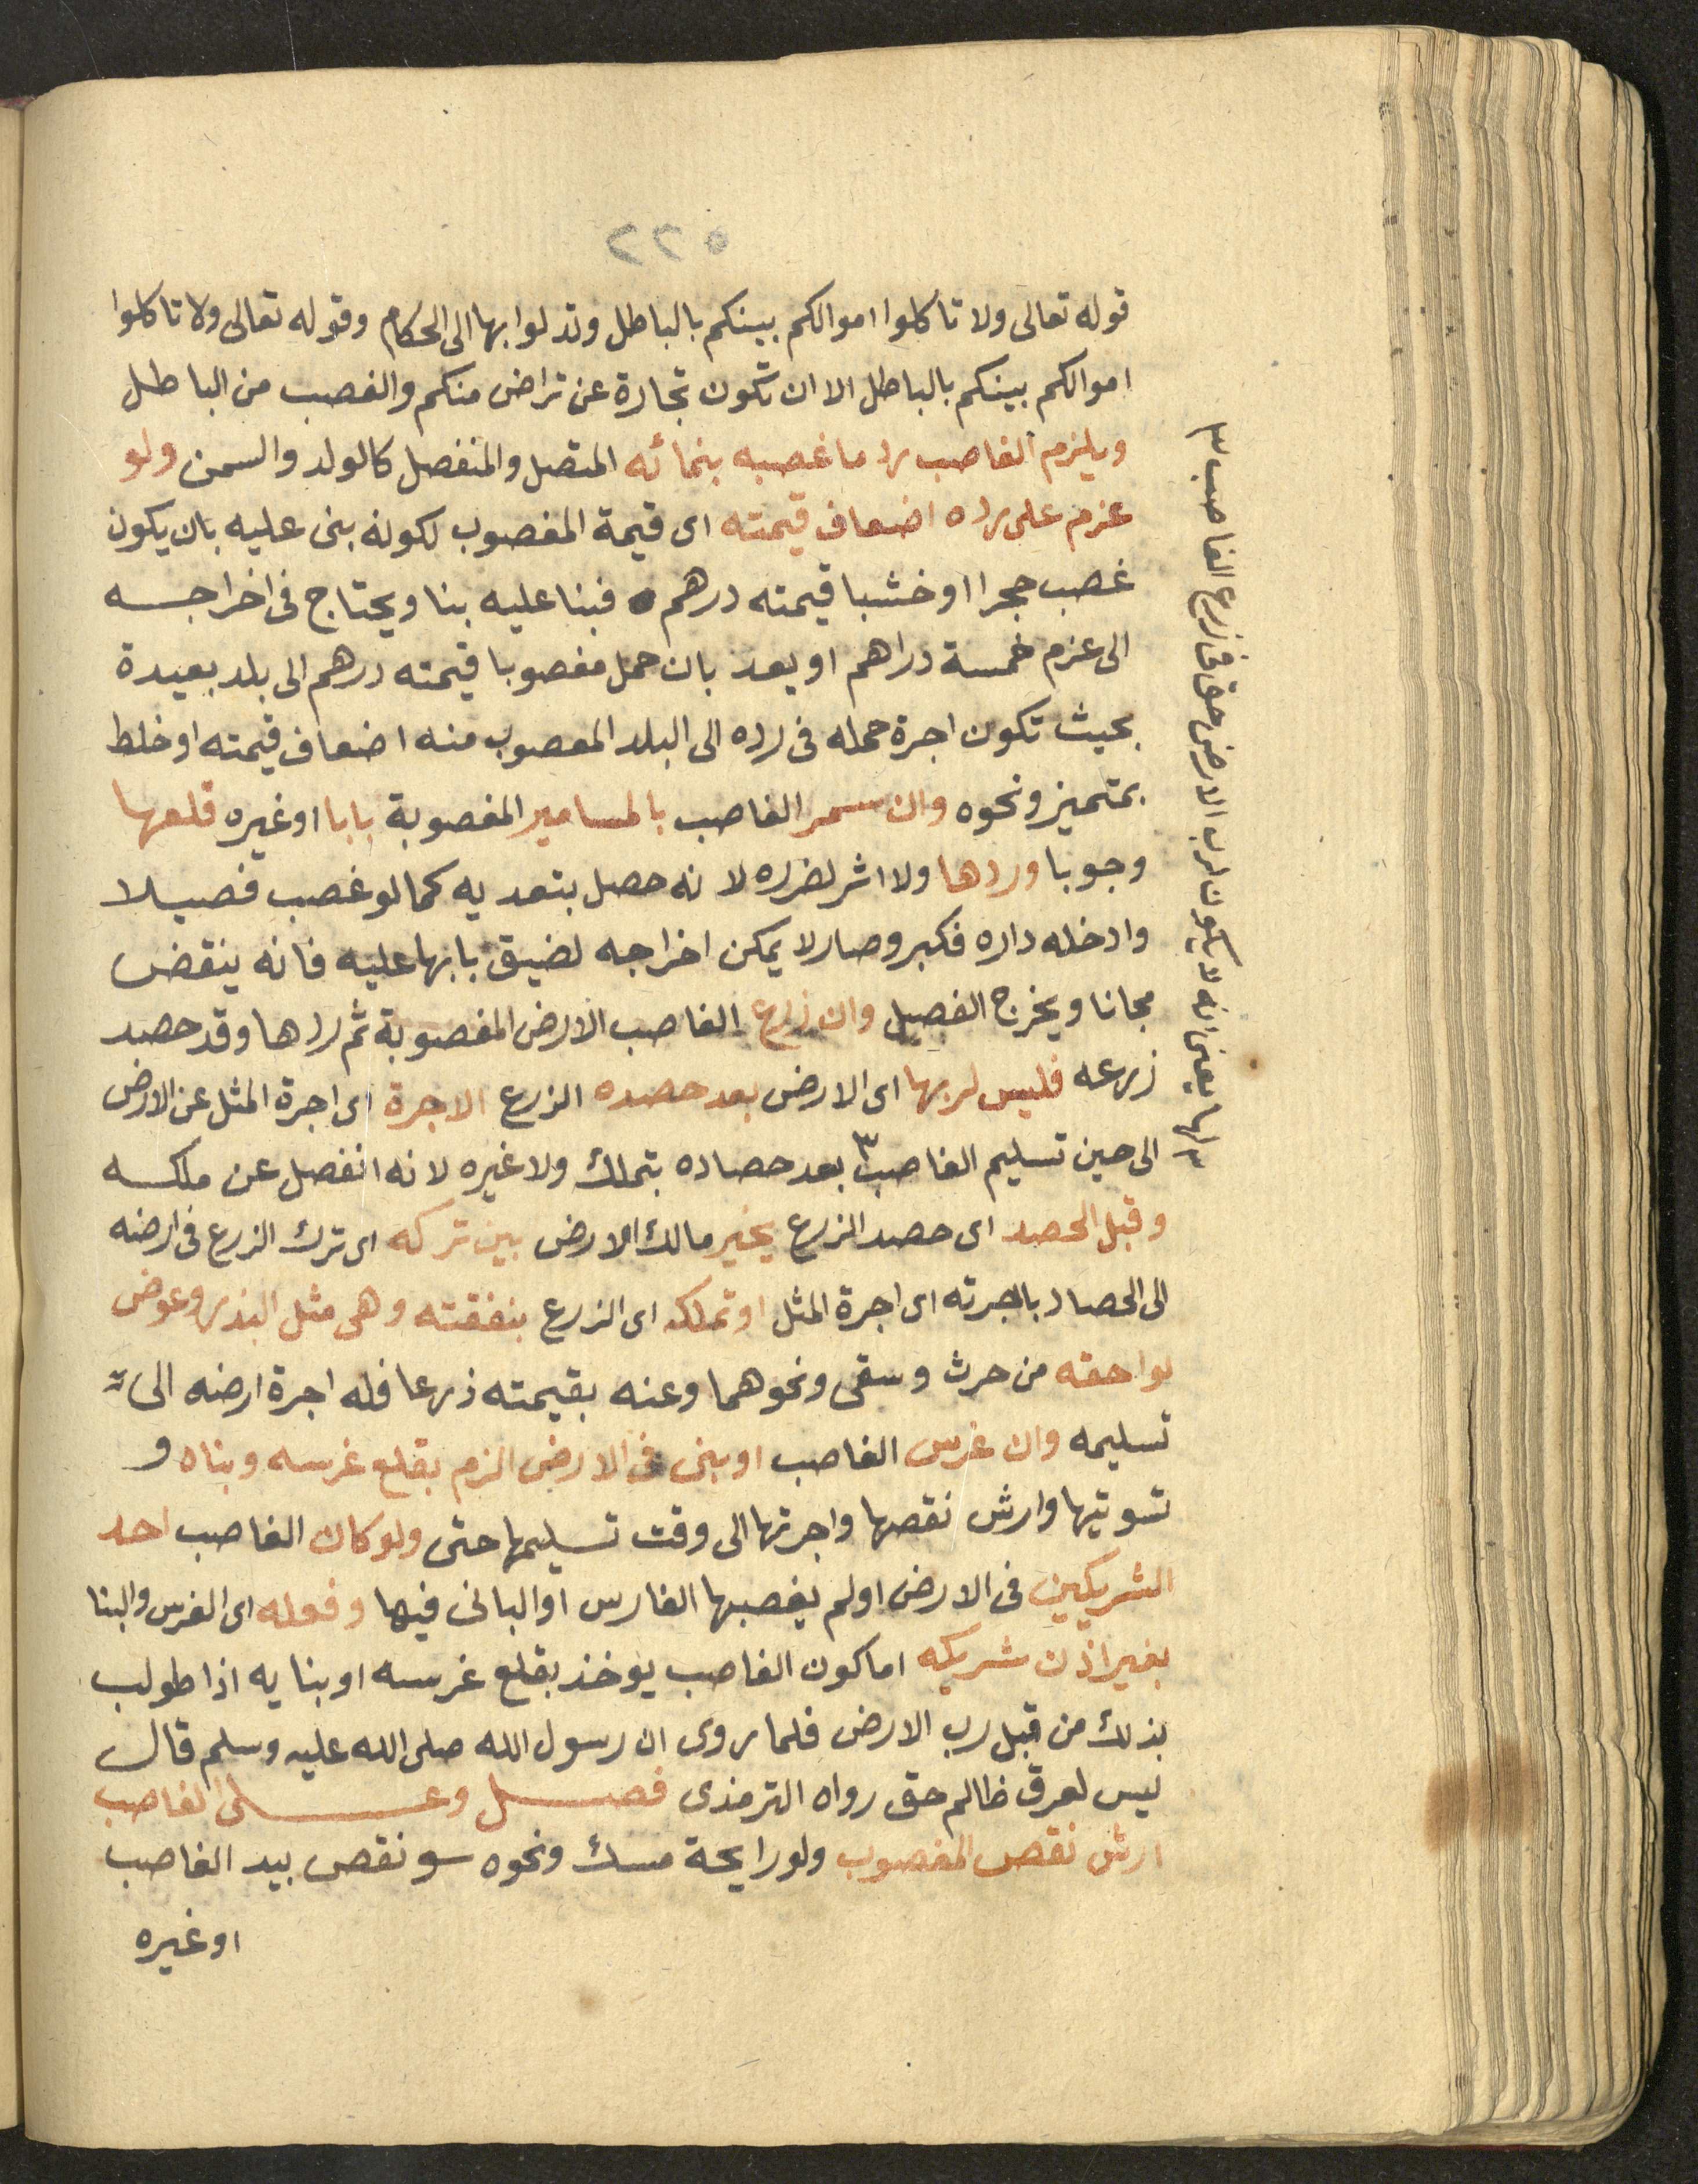 ٢٢٥
قوله تعالى ولا تأكلوا اموالكم بينكم بالباطل وتدلوا بها الى الحكام وقوله تعالى ولا تاكلوا
اموالكم بينكم بالباطل الا ان تكون تجارة عن تراض منكم والغصب من الباطل
ويلزم الغاصب رد ما غصبه بنمائه المتصل والمنفصل كالولد والسمن ولو
غرم على رده اضعاف قيمته اى قيمة المغصوب لكونه بنى عليه بان يكون
غصب حجرا او خشبا قيمته درهم فبنا عليه بنا ويحتاج فى اخراجه
الى غرم خمسة دراهم او بعد بان حمل مغصوبا قيمته درهم الى بلد بعيدة
بحيث تكون اجرة حمله فى رده الى البلد المغصوب منه اضعاف قيمته او خلط
بمتميز ونحوه وان سمر الغاصب بالمسامير المغصوبة بابا او غيره قلعها
وجوبا وردها ولا اثر لضرره لانه حصل بتعديه كما لو غصب فصيلا
وادخله داره فكبر وصار لا يمكن اخراجه لضيق بابها عليه فانه ينقض
مجانا ويخرج الفصيل وان زرع الغاصب الارض المغصوبة ثم ردها وقد حصد
زرعه فليس لربها اى الارض بعد حصده الزرع الاجرة اى اجرة المثل عن الارض
الى حين تسليم الغاصب ٣ بعد حصاده بتملك ولا غيره لانه انفصل عن ملكه
وقبل الحصد اى حصد الزرع يخير مالك الارض بين تركه اى ترك الزرع فى ارضه
الى الحصاد باجرته اى اجرة المثل او تملكه اى الزرع بنفقته وهى مثل البذر وعوض
لواحقه من حرث وسقى ونحوهما وعنه بقيمته زرعا فله اجرة ارضه الى
تسليمه وان غرس الغاصب او بنى فى الارض الزم بقلع غرسه وبناه و
تسويتها وارش نقصها واجرتها الى وقت تسليمها حتى ولو كان الغاصب احد
الشريكين فى الارض او لم يغصبها الغارس او البانى فيها وفعله اى الغرس والبنا
بغير اذن شريكه اما كون الغاصب يوخذ بقلع غرسه او بنايه اذا طولب
بذلك من قبل رب الارض فلما روى ان رسول الله صلى الله عليه وسلم قال
ليس لعرق ظالم حق رواه الترمذى فصل وعلى الغاصب
ارش نقص المغصوب ولو رايحة مسك ونحوه سو نقص بيد الغاصب
او غيره
٣ لها يعنى انه لا يكون لرب الارض حق فى زرع الغاصب ٣